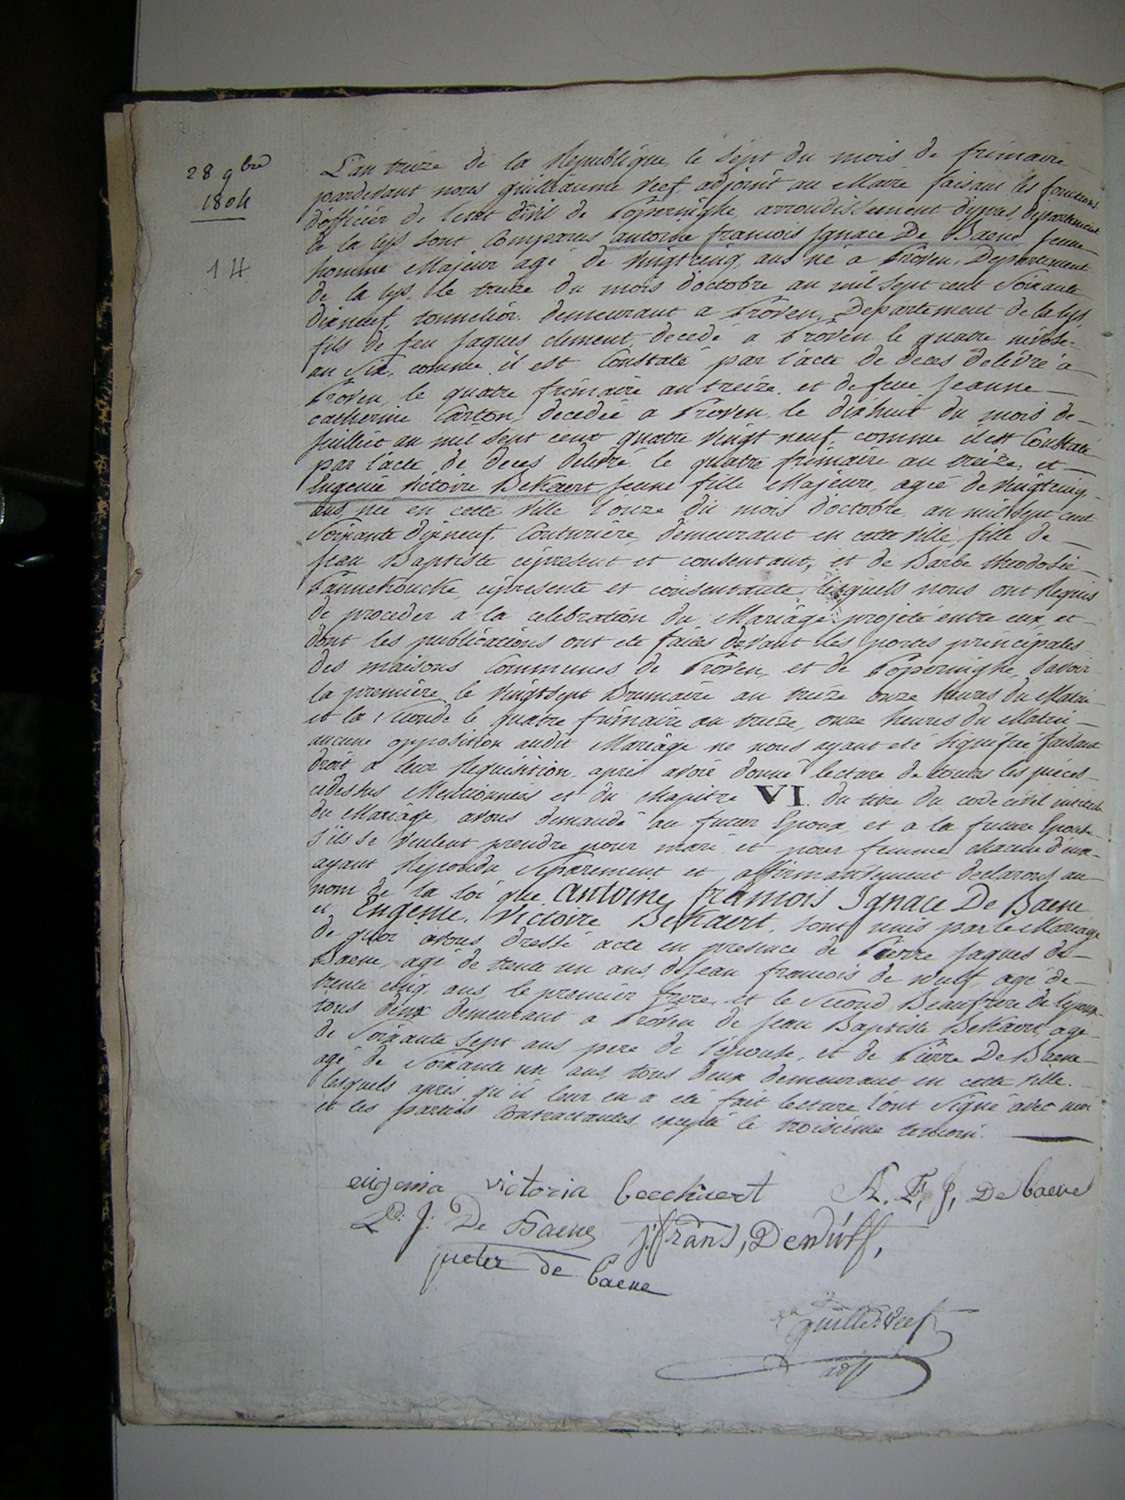 28 9bre
1804
14
L'an treize de la Republique le sept du mois de frimaire
pardevant nous guillaume Veef adjoint au Maire faisant les fonctions
d'officier de l'etat Civil de Poperinghe, arrondissement d'ypres, departement
de la lys sont Comparus antoine francois Ignace De Baene jeune
homme Majeur agé de vingtcinq ans né a Proven, Departement
de la lys, le treize du mois d'octobre an mil sept cent Soixante
dixneuf, tonnelier, demeurant a Proven, Departement de la lys
fils de feu Jaques clement, decedé a Proven le quatre nivôse
an Six, comme il est Constaté par l'acte de deces delivré à
Proven le quatre frimaire an treize, et de feue Jeanne
catherine Carton, decedée a Proven, le dixhuit du mois de
Juillet an mil Sept cent quatre Vingt neuf, comme il est Constaté
par l'acte de deces delivré le quatre frimaire an treize, et
Eugenie Victoire BeKaert jeune fille Majeure, agée de Vingtcinq
ans née en cette Ville l'onze du mois d'octobre an mil sept cent
Soixante dixneuf, Couturière, demeurant en cette ville, fille de
Jean Baptiste ciprésent et consentant, et de Barbe theodosie
cipresente et consentante, lesquels nous ont Requis
de proceder a la celebration du Mariâge projeté entre eux et
dont les publications ont eté faites devant les portes principales
des maisons Communes de Proven, et de Poperinghe, Savoir
la première le Vingtsept Brumaire an treize onze heures du Matin
et la Seconde le quatre frimaire an treize, onze heures du Matin
aucune opposition audit Mariâge ne nous ayant eté Signifié faisant
droit a leur Requisition, après avoir donné lecture de toutes les pièces
cidessus Mentionnées et du chapitre VI. du titre du code civil intitulé
du Mariâge, avons demandé au futur Epoux et a la future Epouse
s'ils se veulent prendre pour mari et pour femme, chacun d'eux
ayant Repondu Séparement et affirmativement declarons au
nom de la loi que Antoine francois Ignace De Baene
et Eugenie, Victoire BeKaert, sont unis par le Mariâge
de quoi avons dressé acte en presence de Pierre Jaques de
Baene, agé de trente un ans de Jean francois de Wulf, agé de
trente cinq ans le premier frere et le Second Beaufrere de l'époux
tous deux demeurant a Proven de Jean Baptiste BeKaert, agé
de Soixante Sept ans pere de l'epouse, et de Pierre De Baene
agé de Soixante un ans, tous deux demeurant en cette Ville.
lesquels après qu'il leur en a eté fait lecture l'ont Signé avec moi
et les parties Contractantes excepté le troisième temoin.
eugenia victoria beeckaert A. F. J, De baene
P: J: De Baene j: frans, Dewulf,
peter de baene
guille Veef
adjt